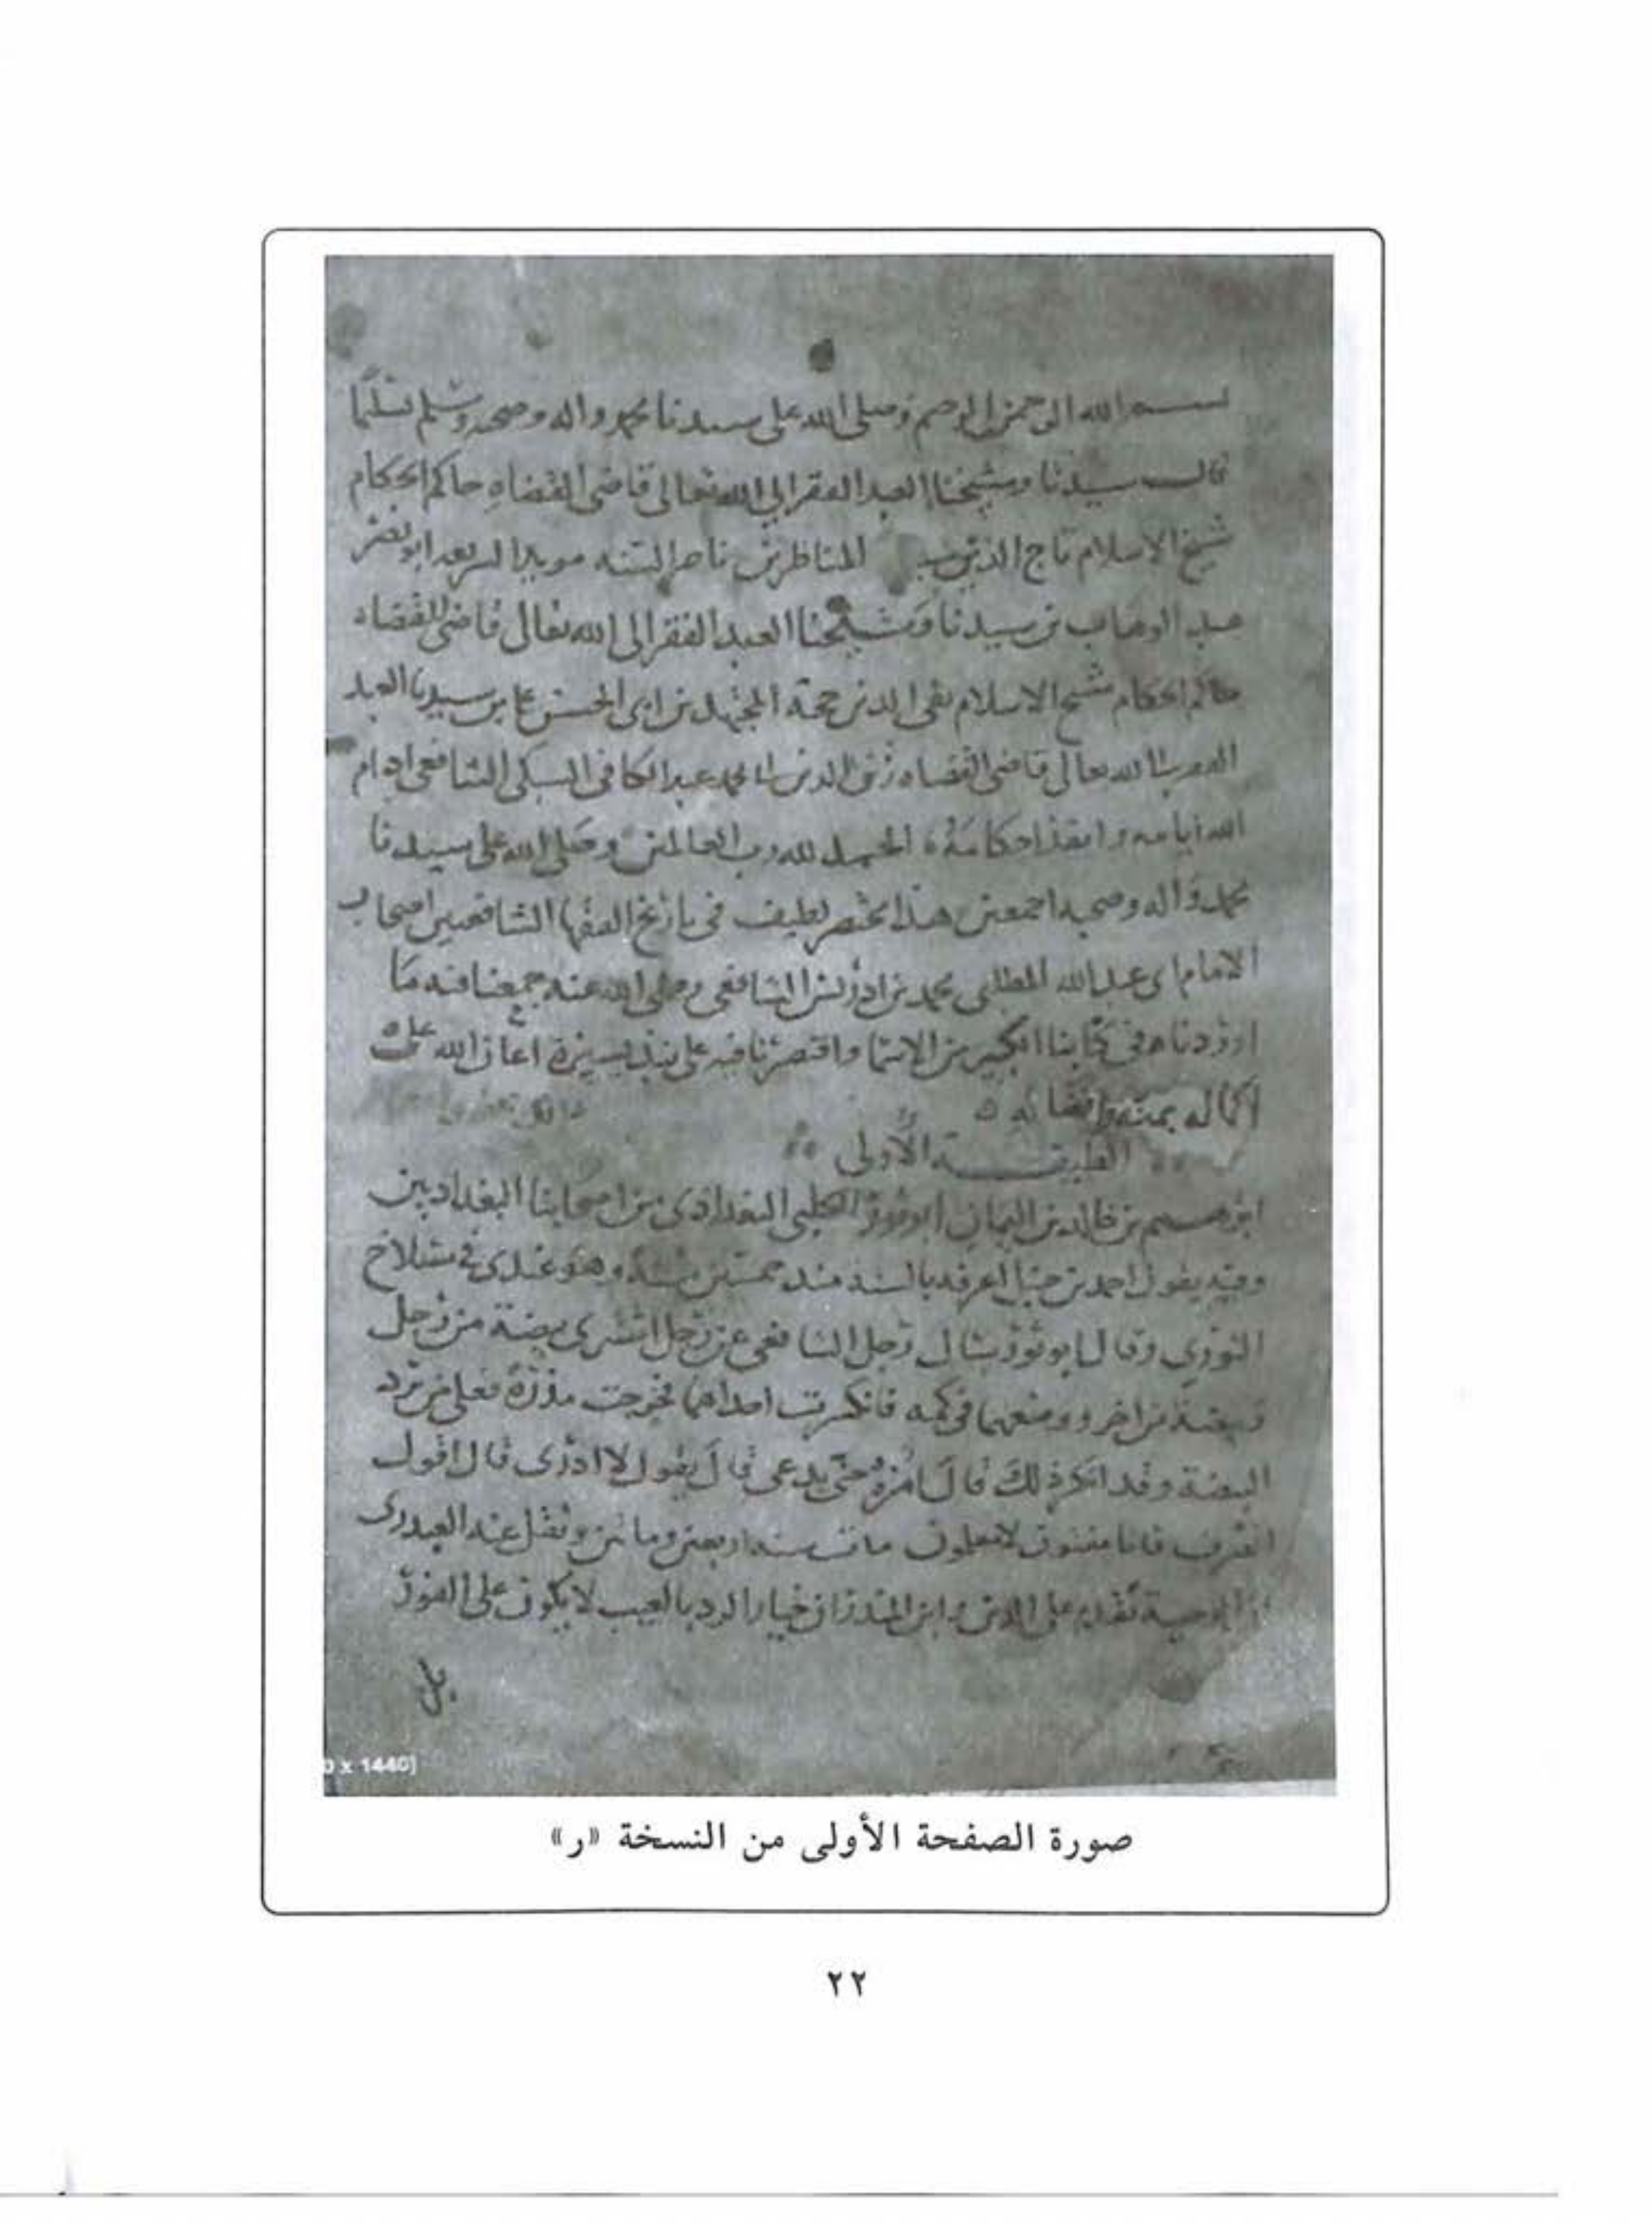 بسم الله الرحمن الرحيم وصلى الله على سيدنا محمد واله وصحبه وسلم تسليما
قال سيدنا وشيخنا العبد الفقير الى الله تعالى قاضى القضاه حاكم الحكام
شيخ الاسلام تاج الدين المناظرين ناصر السنه مويد الشريعه ابو نصر
عبد الوهاب بن سيدنا وشيخنا العبد الفقير الى الله تعالى قاضى القضاه
حاكم الحكام شيخ الاسلام تقى الدين حجة المجتهدين ابى الحسن على بن سيدنا العبد
الفقير الى الله تعالى قاضى القضاه زين الدين ابى محمد عبد الكافى السبكى الشافعى ادام
الله ايامه وانفذ احكامه الحمد لله رب العالمين وصلى الله على سيدنا
محمد واله وصحبه اجمعين هذا مختصر لطيف فى تاريخ الفقها الشافعيين اصحاب
الامام ابى عبد الله المطلبى محمد بن ادريس الشافعى رضى الله عنه جمعنا فيه ما
اوردناه فى كتابنا الكبير من الاسما واقتصرنا فيه على نبذ يسيرة اعان الله على
اكماله بمنه وافضاله
الطبقة الأولى
ابرهيم بن خالد بن اليمان ابو ثور الكلبى البغدادى من اصحابنا البغداديين
وفيه يقول احمد بن حنبل اعرفه بالسنه منذ خمسين سنه وهو عندى فى مسلاخ
الثورى وقال ابو ثور سال رجل الشافعى عن رجل اشترى بيضة من رجل
وبيضة من اخر ووضعهما فى كمه فانكسرت احداهما فخرجت مذرة فعلى من ترد
البيضة وقد انكر ذلك قال امره حتى يدعى قال يقول لا ادرى قال اقول
انصرف فانا مفتون لا معلمون مات سنه اربعين وماتين ونقل عنه العبدرى
ان الوصية تقدم على الدين وابن المنذر ان خيار الرد بالعيب لا يكون على الفور
بل
0 x 1440]
صورة الصفحة الأولى من النسخة «ر»
٢٢